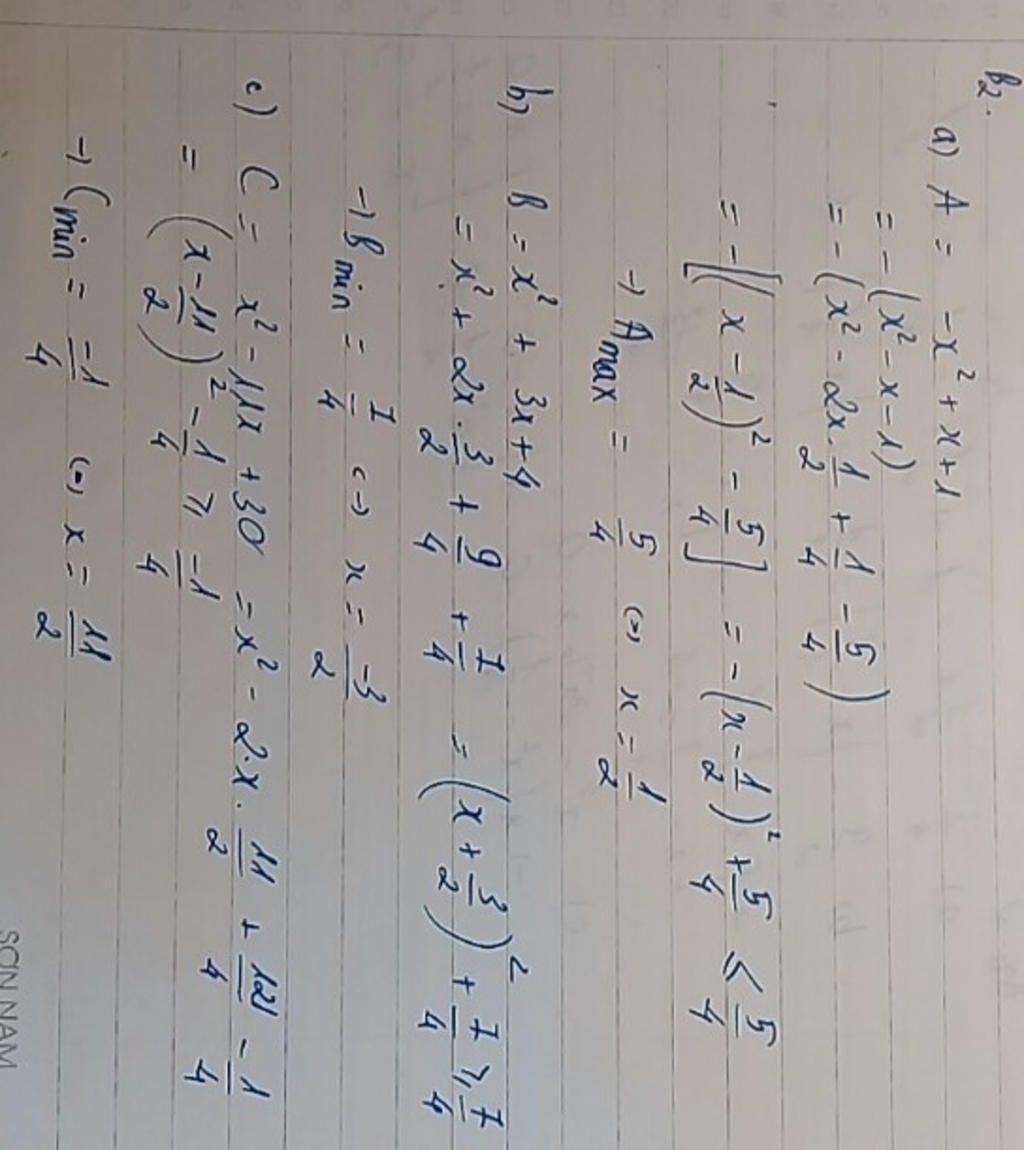 B2.
a) A = -x² + x + 1
= -(x² - x - 1)
= -(x² - 2x. 1/2 + 1/4 - 5/4)
= -[(x - 1/2)² - 5/4] = -(x - 1/2)² + 5/4 ≤ 5/4
→ A max = 5/4 (=) x = 1/2
b) B = x² + 3x + 4
= x² + 2x. 3/2 + 9/4 + 7/4 = (x + 3/2)² + 7/4 ≥ 7/4
→ B min = 7/4 (→) x = -3/2
c) C = x² - 11x + 30 = x² - 2.x. 11/2 + 121/4 - 1/4
= (x - 11/2)² - 1/4 ≥ -1/4
→ C min = -1/4 (=) x = 11/2
SƠN NAM